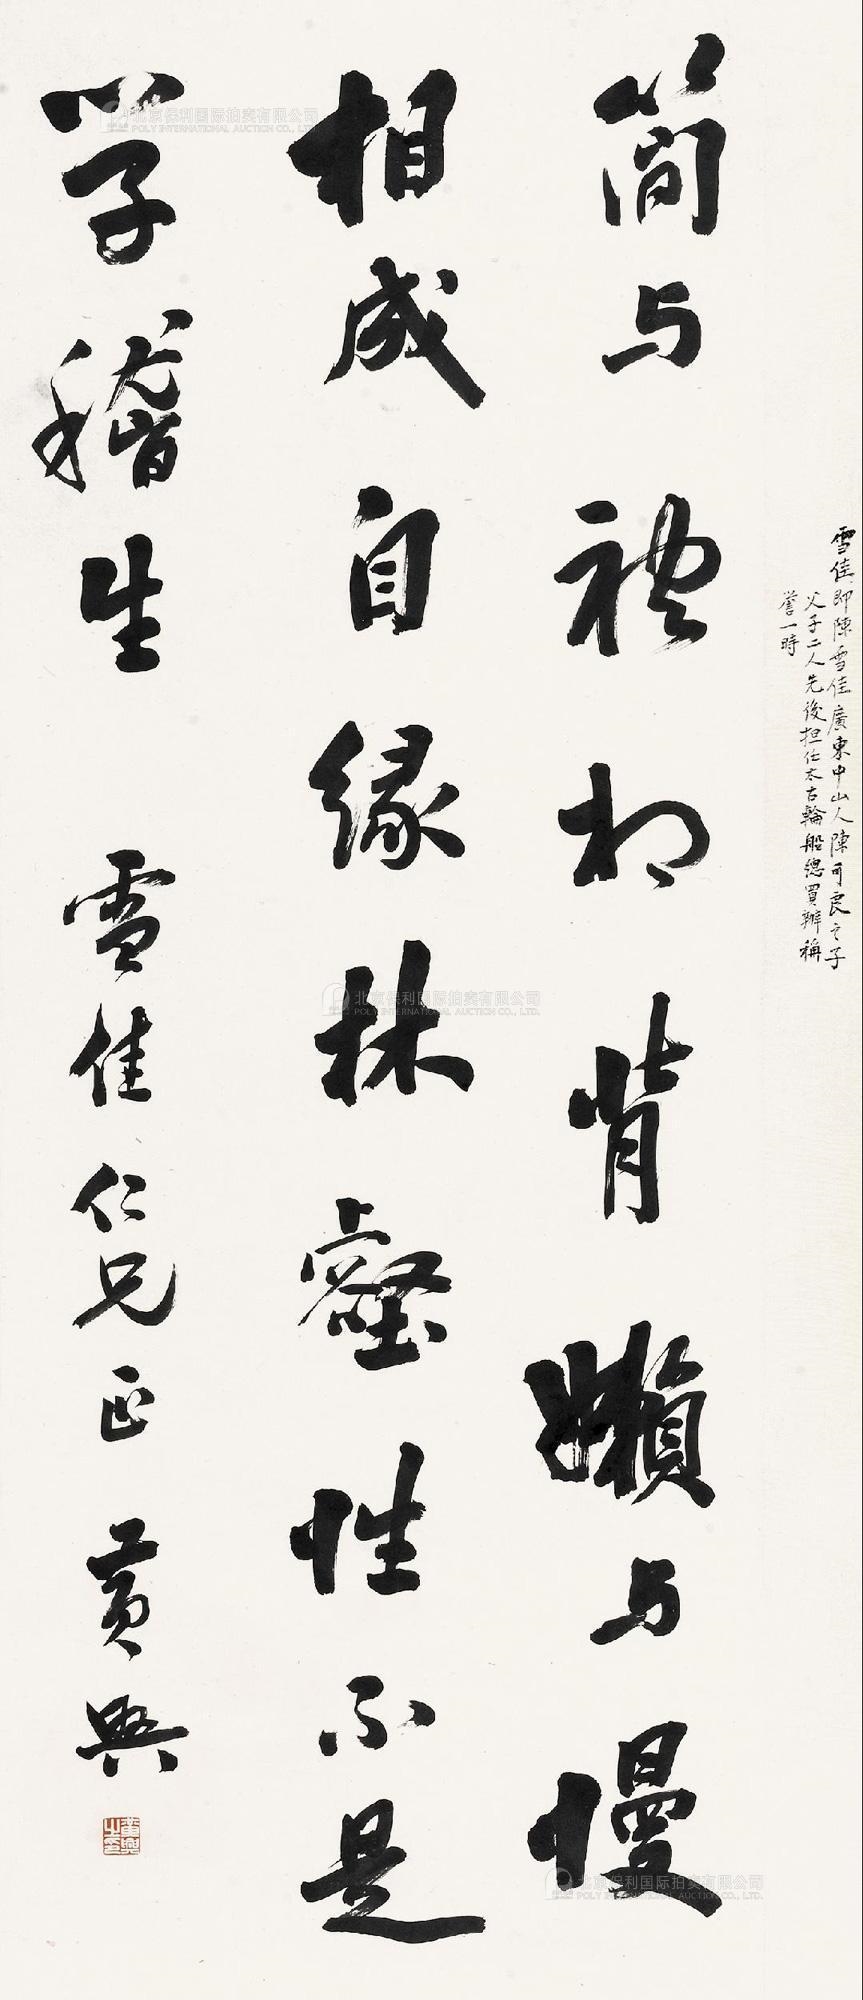 雪佳即陳雪佳廣東中山人陳可良之子
父子二人先後担任太古輪船總買辦稱
譽一時
简与礼相背嬾与慢
相成自缘林壑性不是
学嵇生 雪佳仁兄正 黄興
黄興之印
北京保利国际拍卖有限公司
POLY INTERNATIONAL AUCTION CO., LTD.
北京保利国际拍卖有限公司
POLY INTERNATIONAL AUCTION CO., LTD.
北京保利国际拍卖有限公司
POLY INTERNATIONAL AUCTION CO., LTD.